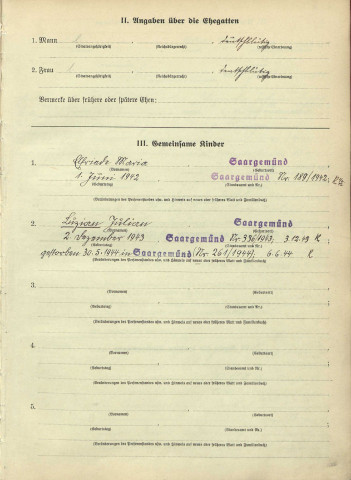 II. Angaben über die Ehegatten
1. Mann deutschblütig
(Staatsangehörigkeit) (Reichsbürgerrecht) (rassische Einordnung)
2. Frau deutschblütig
(Staatsangehörigkeit) (Reichsbürgerrecht) (rassische Einordnung)
Vermerke über frühere oder spätere Ehen:
III. Gemeinsame Kinder
1. Elfriede Maria Saargemünd
(Vornamen) (Geburtsort)
1. Juni 1942 Saargemünd Nr. 189/1942.
(Geburtstag) (Standesamt und Nr.)
(Veränderungen des Personenstandes usw. und Hinweis auf neues oder früheres Blatt und Familienbuch)
2. Luzian Julian Saargemünd
(Vornamen) (Geburtsort)
2. Dezember 1943 Saargemünd Nr. 336/1943; 3.12.43 K
(Geburtstag) (Standesamt und Nr.)
gestorben 30.5.1944 in Saargemünd (Nr. 261/1944); 6.6.44 K
(Veränderungen des Personenstandes usw. und Hinweis auf neues oder früheres Blatt und Familienbuch)
3.
(Vornamen) (Geburtsort)
(Geburtstag) (Standesamt und Nr.)
(Veränderungen des Personenstandes usw. und Hinweis auf neues oder früheres Blatt und Familienbuch)
4.
(Vornamen) (Geburtsort)
(Geburtstag) (Standesamt und Nr.)
(Veränderungen des Personenstandes usw. und Hinweis auf neues oder früheres Blatt und Familienbuch)
5.
(Vornamen) (Geburtsort)
(Geburtstag) (Standesamt und Nr.)
(Veränderungen des Personenstandes usw. und Hinweis auf neues oder früheres Blatt und Familienbuch)